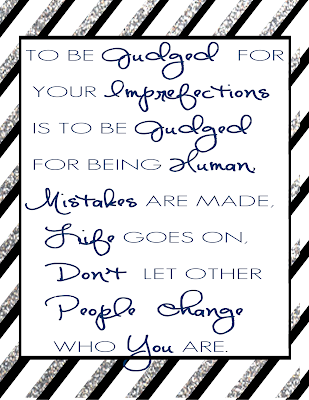 TO BE Judged FOR
YOUR Imprefections
IS TO BE Judged
FOR BEING Human.
Mistakes ARE MADE,
Life GOES ON,
Don't LET OTHER
People Change
WHO You ARE.